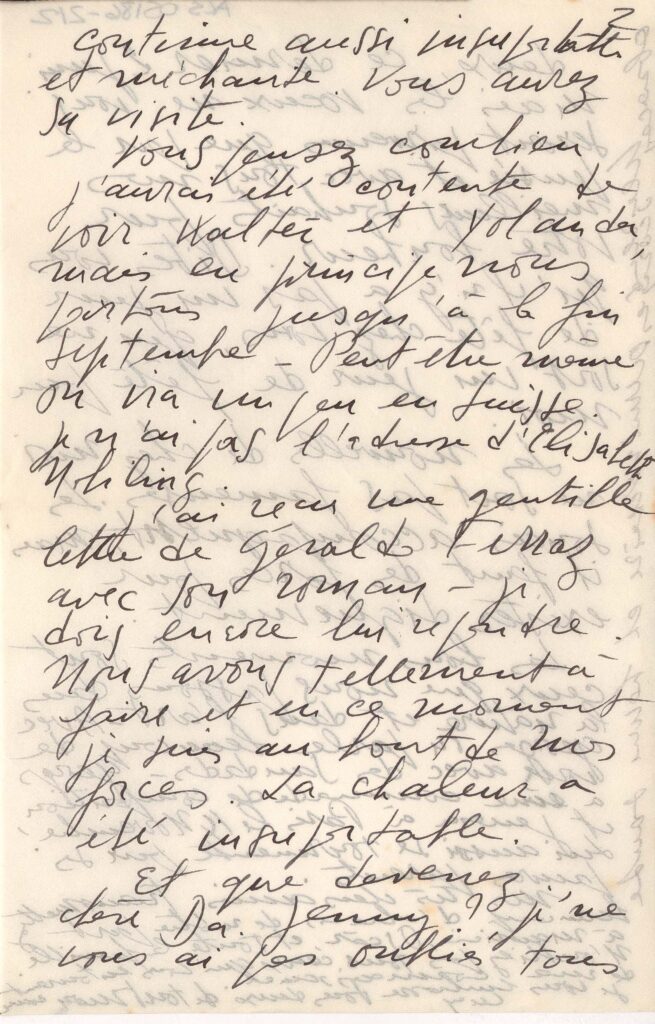 2
continue aussi insuportable
et méchante. Vous aurez
sa visite.
Vous pensez combien
j'aurai été contente de
voir Walter et Yolanda,
mais en principe nous
partons jusqu'à la fin
Septembre - Peut être même
on ira un peu en Suisse.
je n'ai pas l'adresse d'Elisabeth
Nobiling.
j'ai reçu une gentille
lettre de Geraldo Ferraz
avec son roman - je
dois encore lui repondre.
Nous avons tellement à
faire et en ce moment
je suis au bout de mos
forces. La chaleur a
été insuportable.
Et que devenez
chère Da. Jenny? je ne
vous ai pas oubliés tous